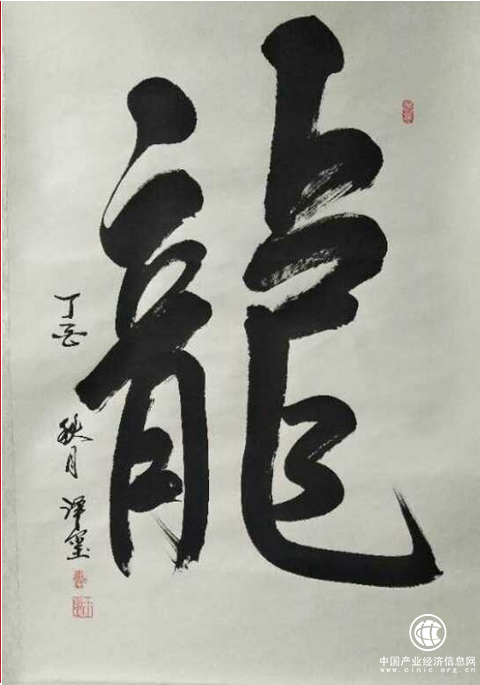 龍
丁酉
秋月
中国产业经济信息网
www.cinic.org.cn